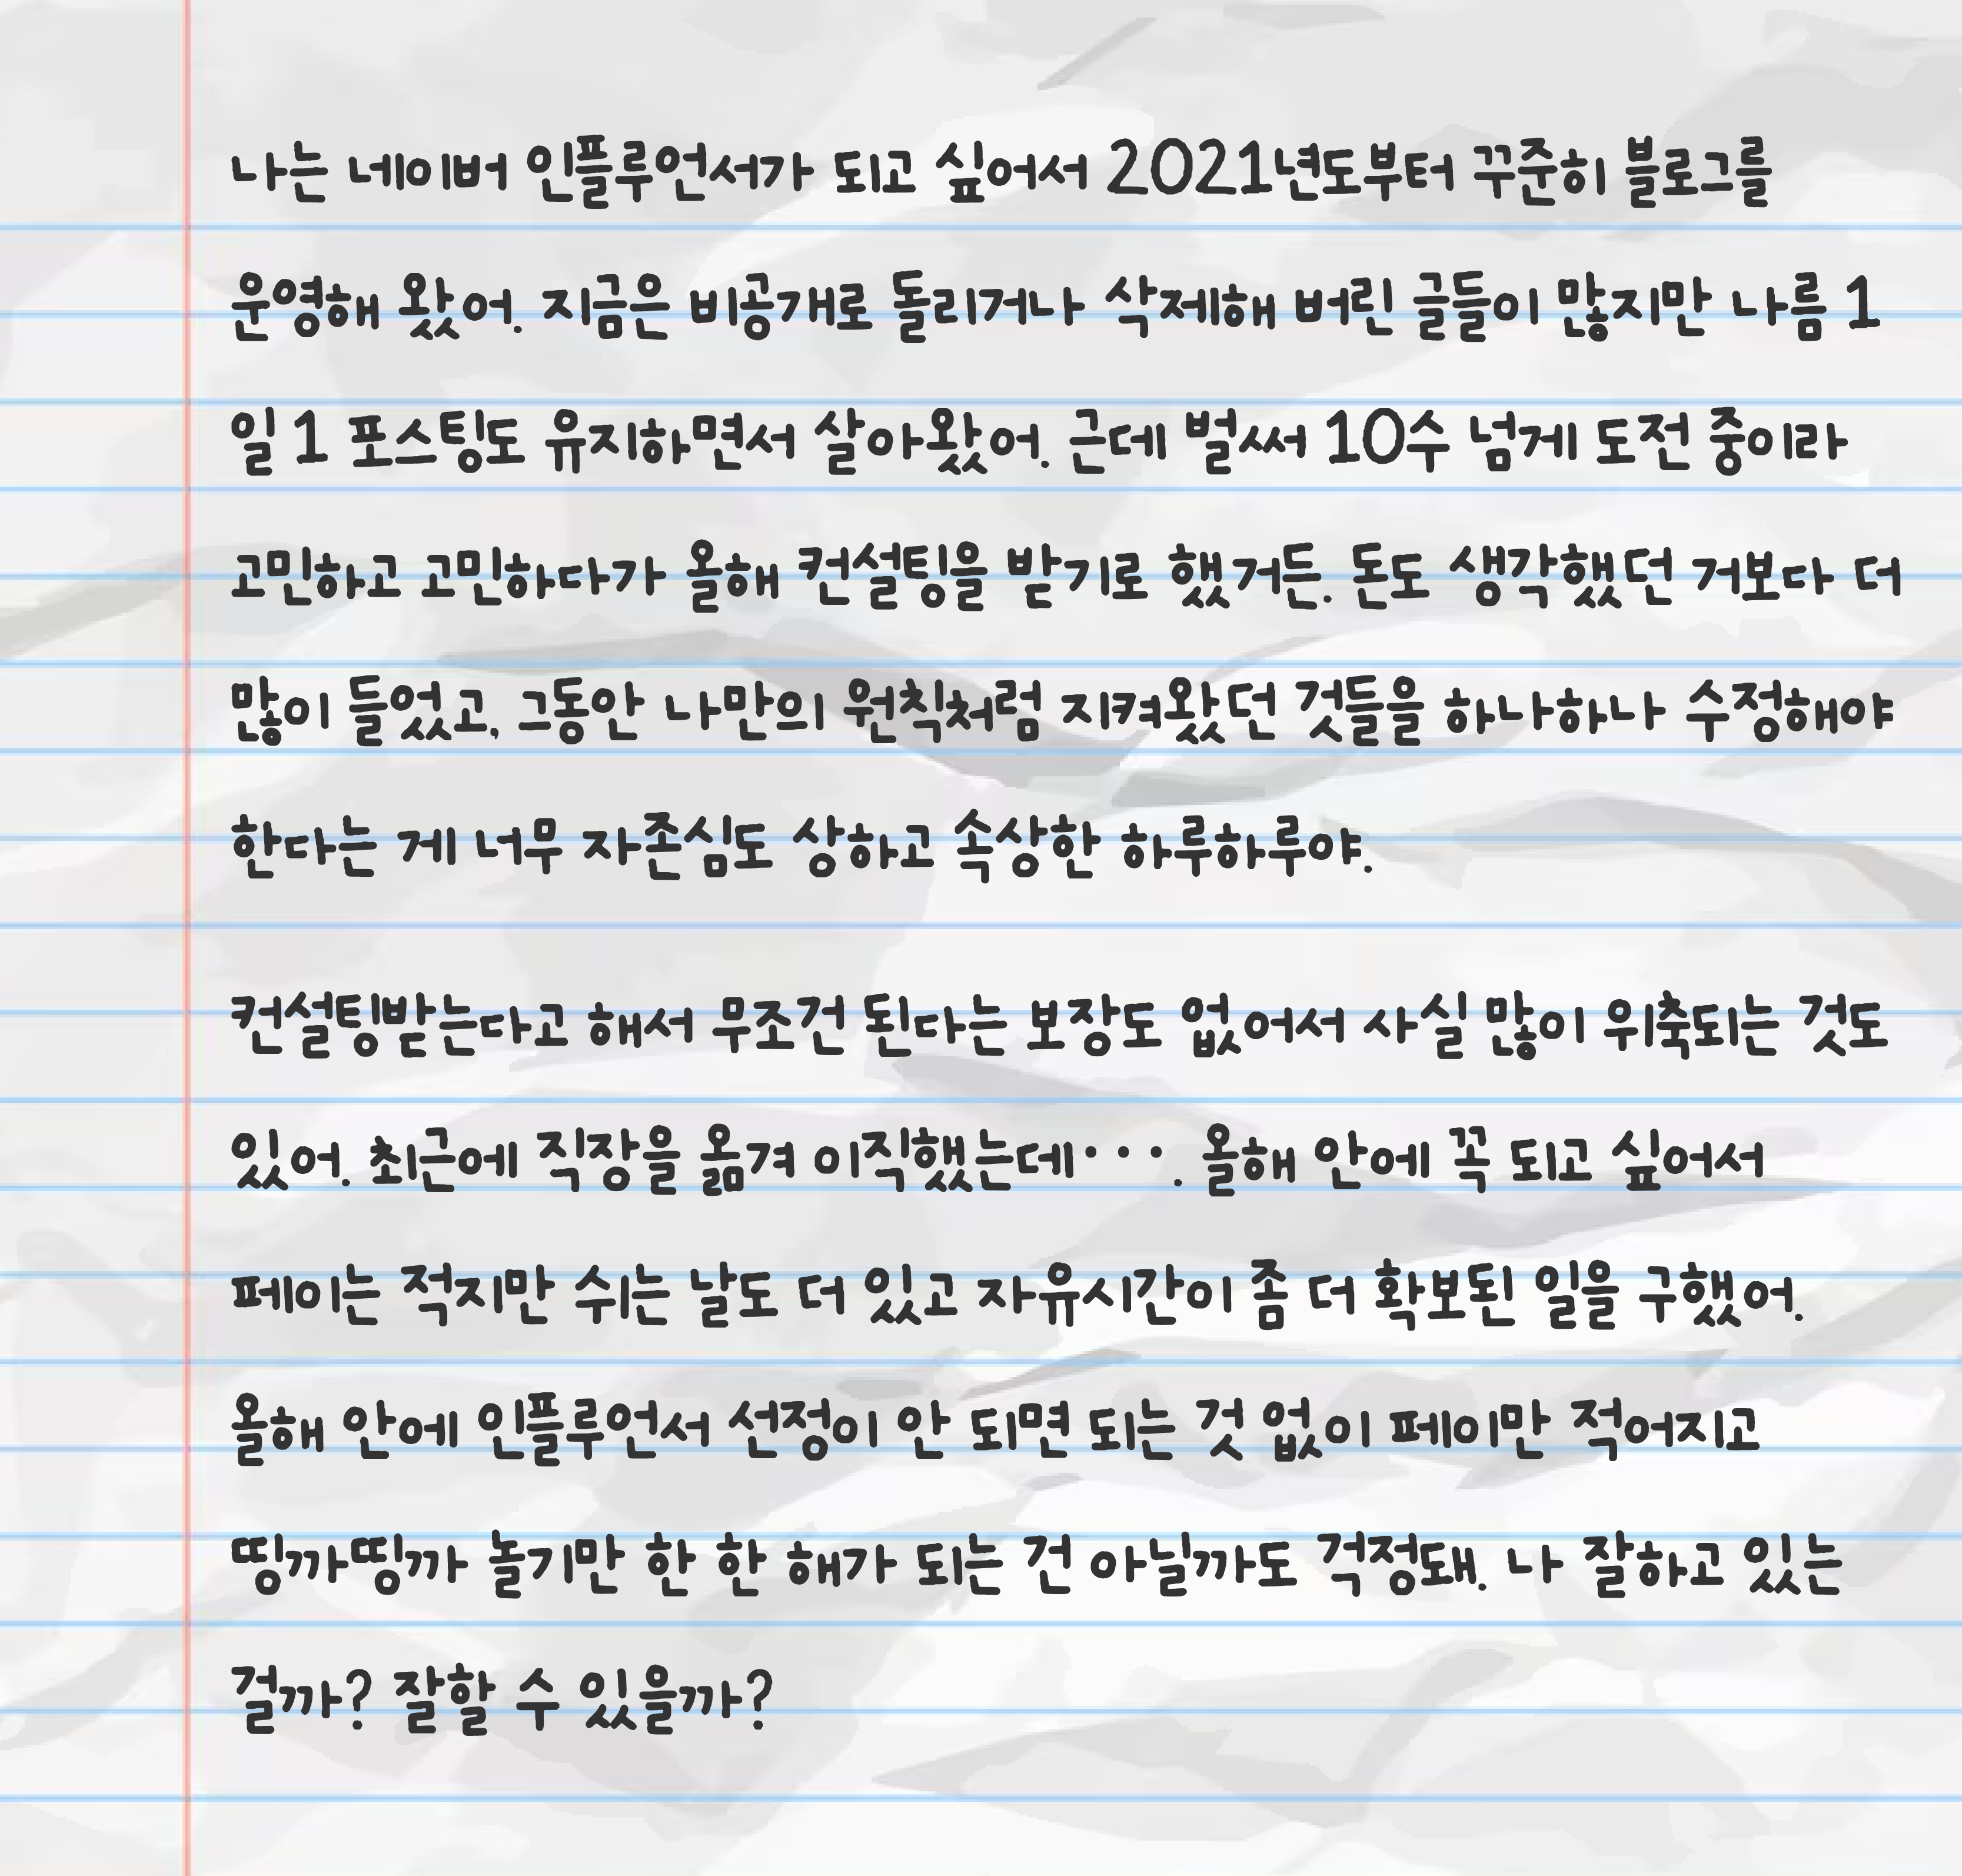 나는 네이버 인플루언서가 되고 싶어서 2021년도부터 꾸준히 블로그를
운영해 왔어. 지금은 비공개로 돌리거나 삭제해 버린 글들이 많지만 나름 1
일 1 포스팅도 유지하면서 살아왔어. 근데 벌써 10수 넘게 도전 중이라
고민하고 고민하다가 올해 컨설팅을 받기로 했거든. 돈도 생각했던 거보다 더
많이 들었고, 그동안 나만의 원칙처럼 지켜왔던 것들을 하나하나 수정해야
한다는 게 너무 자존심도 상하고 속상한 하루하루야.
컨설팅받는다고 해서 무조건 된다는 보장도 없어서 사실 많이 위축되는 것도
있어. 최근에 직장을 옮겨 이직했는데···. 올해 안에 꼭 되고 싶어서
페이는 적지만 쉬는 날도 더 있고 자유시간이 좀 더 확보된 일을 구했어.
올해 안에 인플루언서 선정이 안 되면 되는 것 없이 페이만 적어지고
띵까띵까 놀기만 한 한 해가 되는 건 아닐까도 걱정돼. 나 잘하고 있는
걸까? 잘할 수 있을까?